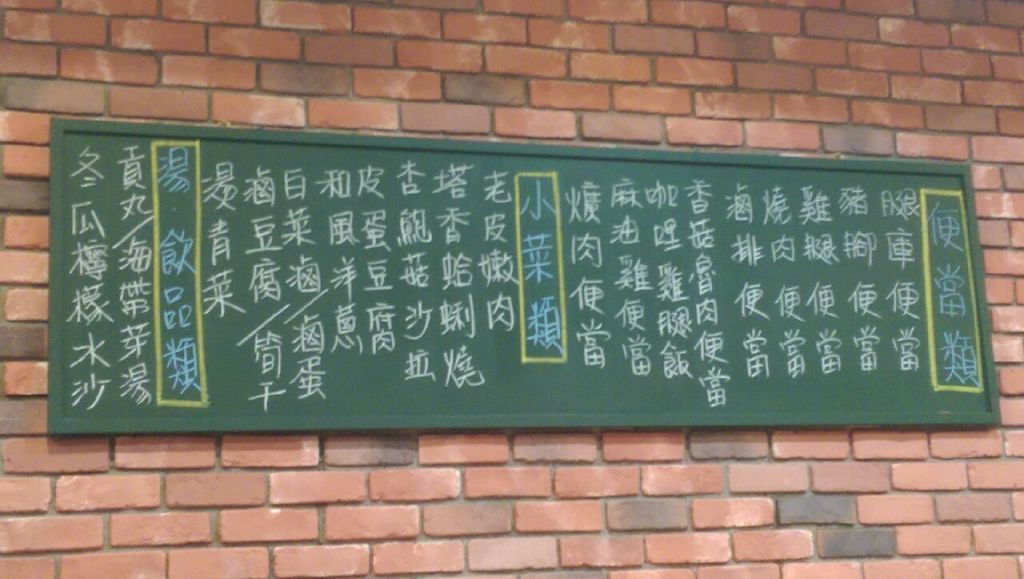 便當類
腿庫便當
豬腳便當
雞腿便當
燒肉便當
滷排便當
香菇魯肉便當
咖哩雞腿飯
麻油雞便當
爌肉便當
小菜類
老皮嫩肉
塔香蛤蜊燒
杏鮑菇沙拉
皮蛋豆腐
和風洋蔥
白菜滷/滷蛋
滷豆腐/筍干
燙青菜
湯.飲品類
貢丸/海帶芽湯
冬瓜檸檬水沙